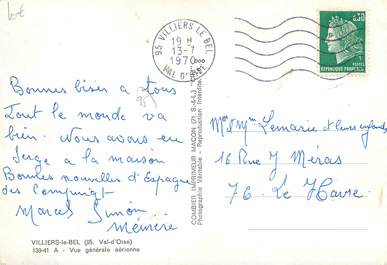 95 VILLIERS LE BEL
19 H
13-7
1970
VAL D'OISE
0,30
POSTES
REPUBLIQUE FRANCAISE
Bonnes bises à tous
Tout le monde va
bien. Nous avons eu
Serge a la maison
Bonnes nouvelles d'Espagne
des
Marcel Simon
Mémère
Mr et Mme Lemarie et leurs enfants
16 Rue J Méras
76 Le Havre
COMBIER IMPRIMEUR MACON (71, S.-&-L.)
Photographie Véritable - Reproduction Interdite
VILLIERS-le-BEL (95. Val-d'Oise)
139-41 A - Vue générale aérienne